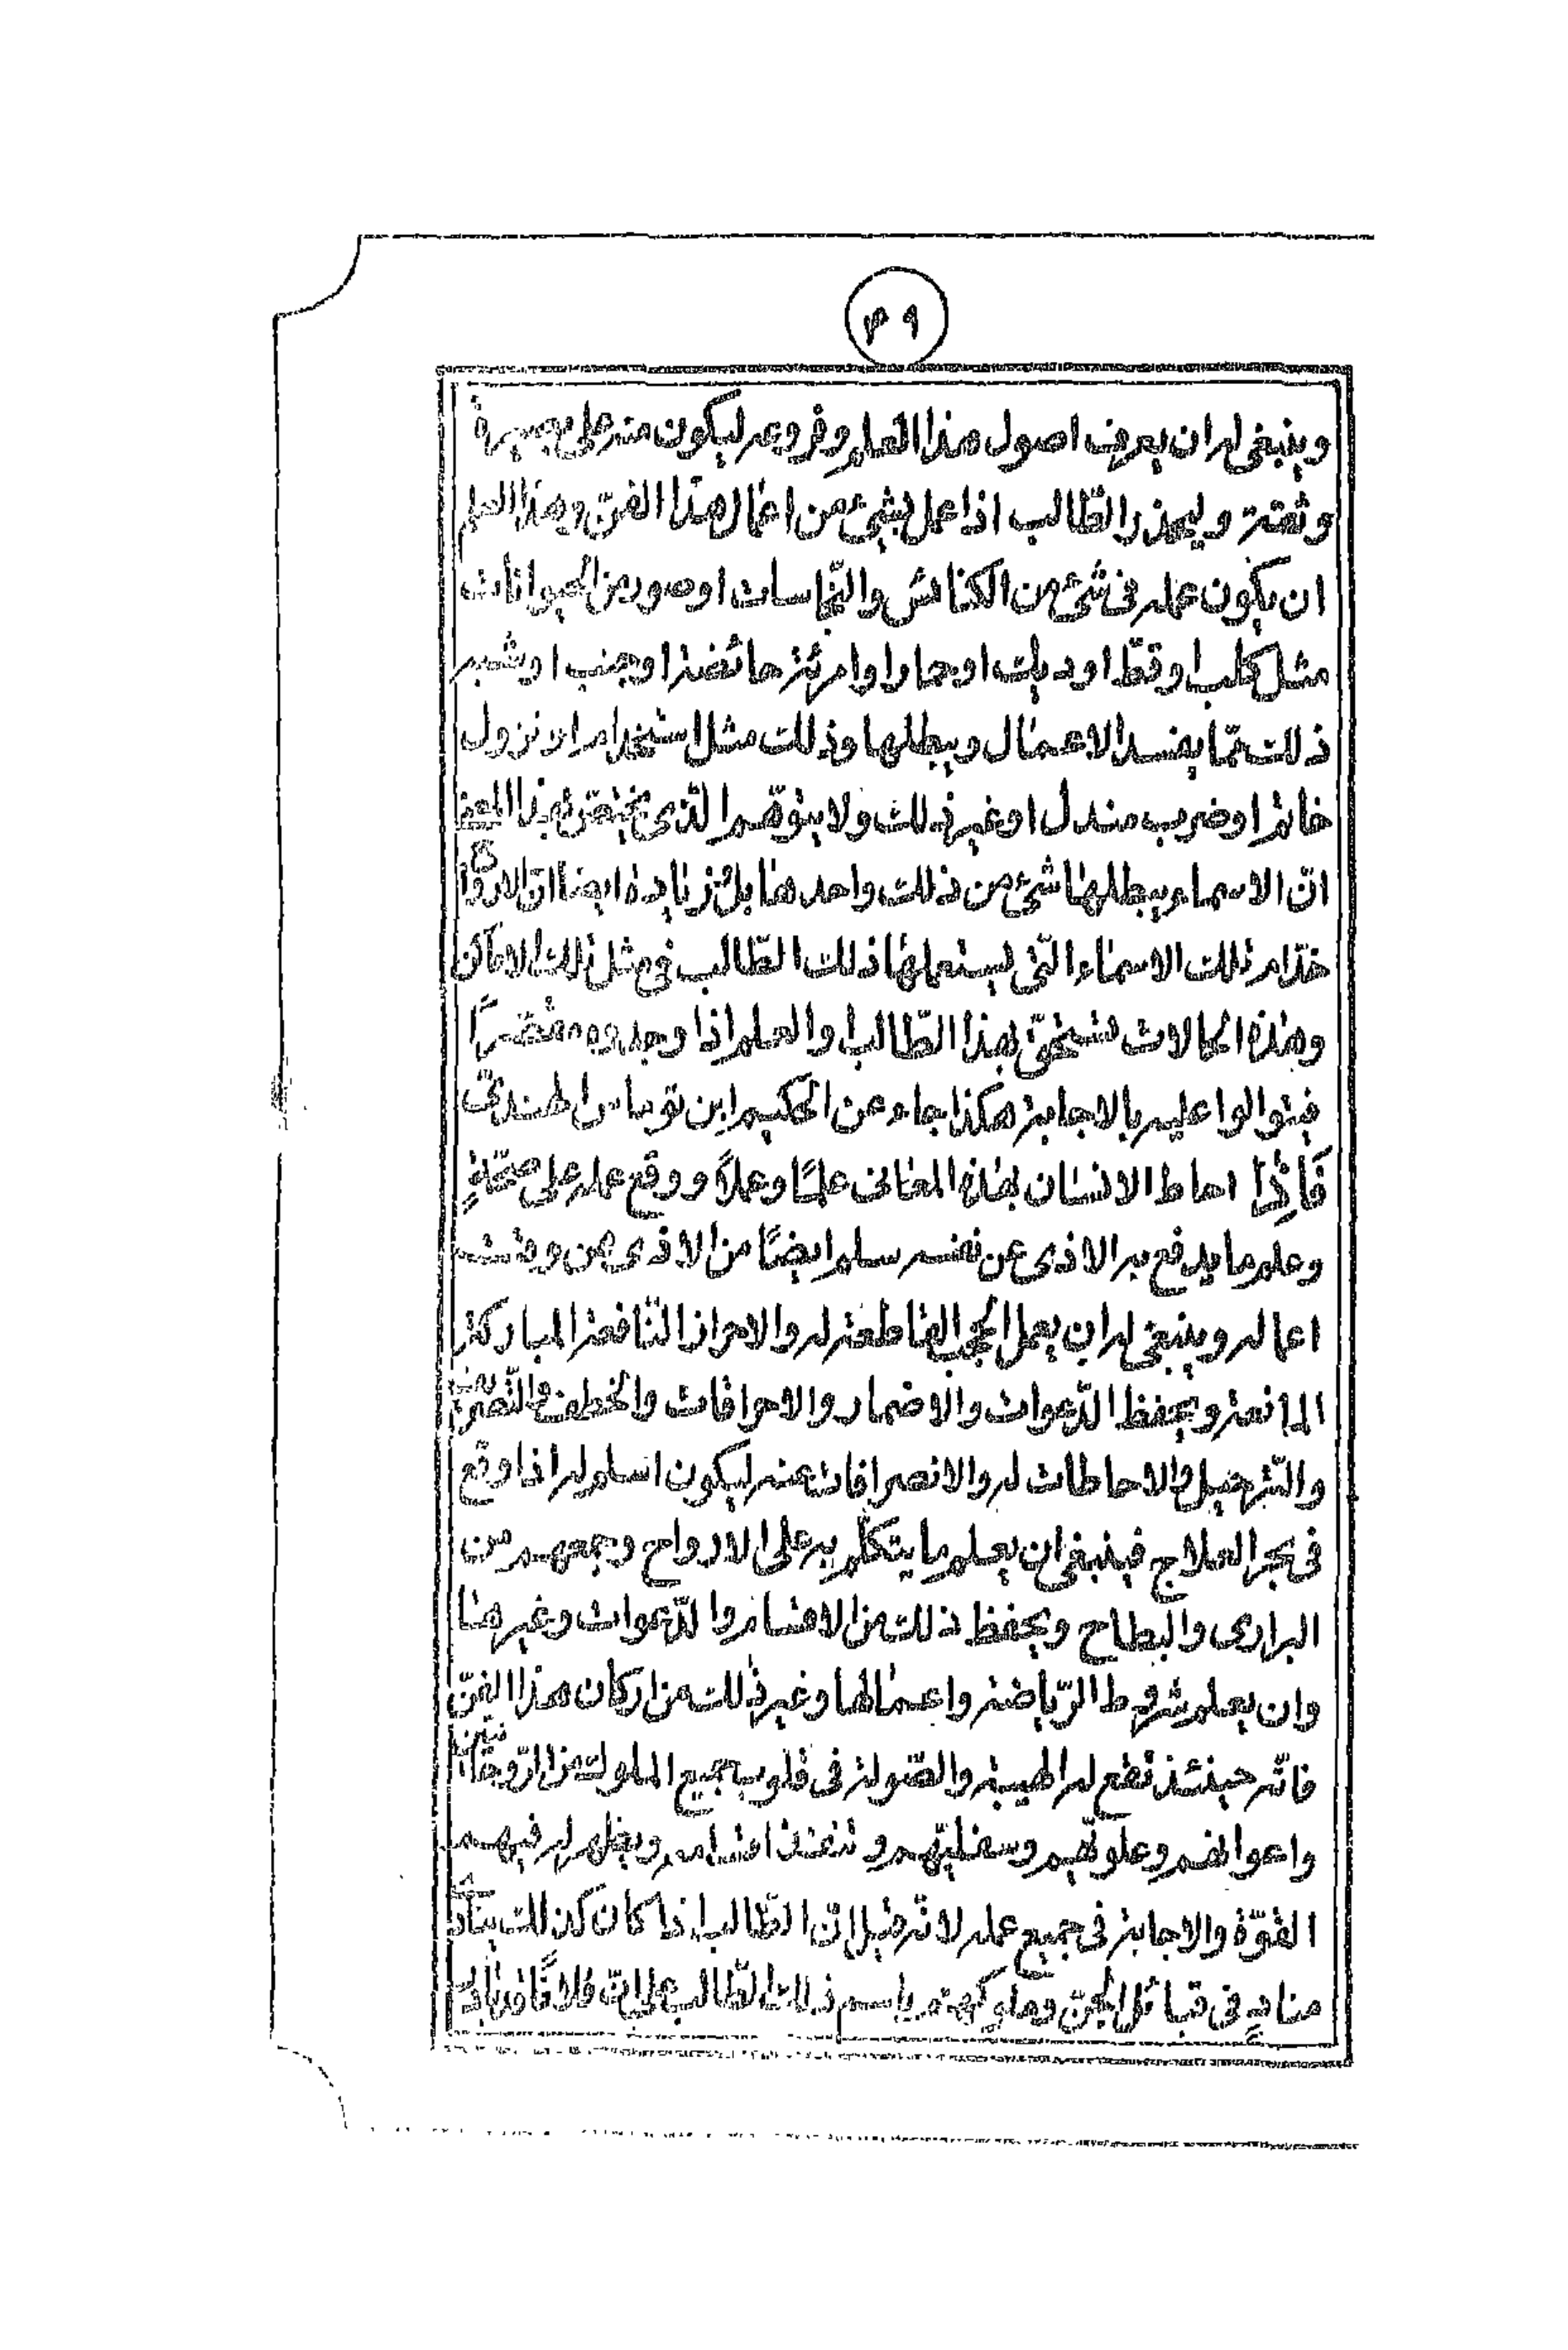 ٤٩
وينبغى له ان يعرف اصول هذا العلم وفروعه ليكون منه على بصيرة
وثقة وليحذر الطّالب اذا عمل بشئ من اعمال هذا الفنّ وهذا العلم
ان يكون عمله فى شئ من الكنائس والنّجاسات او صورة من الحيوانات
مثل كلب او قطّ او ديك او حمارا وامرئة حائضة او جنب او شبه
ذلك ممّا يفسد الاعمال ويبطلها وذلك مثل استخدام او نزول
خاتم او ضرب مندل او غير ذلك ولا يتوهّم الّذى يختصّ بهذا المعنى
انّ الاسماء يبطلها شئ من ذلك واحدها بل زيادة ايضا انّ الارواح
خدّام تلك الاسماء الّتى يستعملها ذلك الطّالب فى مثل تلك الاماكن
وهذه الحالات تستخفّ بهذا الطّالب والعلم اذا وجدوه مقصّرًا
فيتوالوا عليه بالاجابة هكذا جاء عن الحكيم ابن توماس الهندىّ
فَاِذَا احاط الانسان بهذه المعانى علمًا وعملًا ووقع عمله على صحّةٍ
وعلم ما يدفع به الاذى عن نفسه سلم ايضًا من الاذى من وقت
اعماله وينبغى له ان يعمل الحجب القاطعة له والاحراز النّافعة المباركة
المانعة ويحفظ الدّعوات والاضمار والاحراقات والخطف والتّصريف
والتّرحيل والاحاطات له والانصرافات عنه ليكون اسلم له اذا وقع
فى بحر العلاج فينبغى ان يعلم ما يتكلّم به على الارواح وجمعهم من
البرارى والبطاح ويحفظ ذلك من الاقسام والدّعوات وغيرها
وان يعلم شروط الرّياضة واعمالها وغير ذلك من اركان هذا الفنّ
فانّه حينئذ تقع له الهيبة والصّولة فى قلوب جميع الملوك من الرّوحانيّين
واعوانهم وعلويّهم وسفليّهم وتنفذ اقسامه ويظهر له فيهم
القوّة والاجابة فى جميع عمله لانّه قيل انّ الطّالب اذا كان كذلك ينادى
منادٍ فى قبائل الجنّ وملوكهم باسم ذلك الطّالب على انّ فلانًا